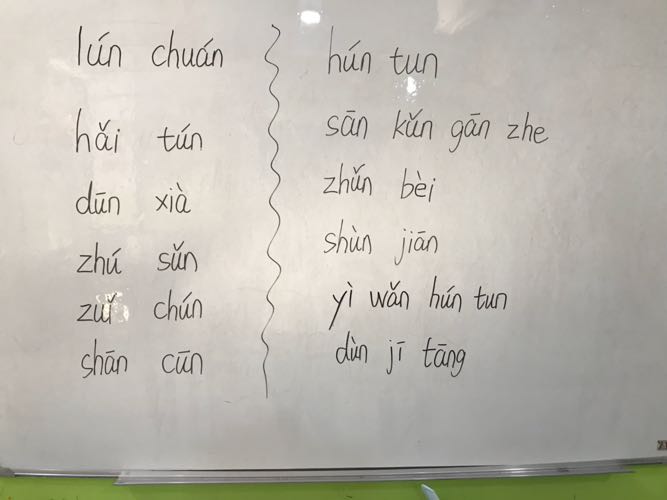 lún chuán
hǎi tún
dūn xià
zhú sǔn
zuǐ chún
shān cūn
hún tun
sān kǔn gān zhe
zhǔn bèi
shùn jiān
yì wǎn hún tun
dùn jī tāng